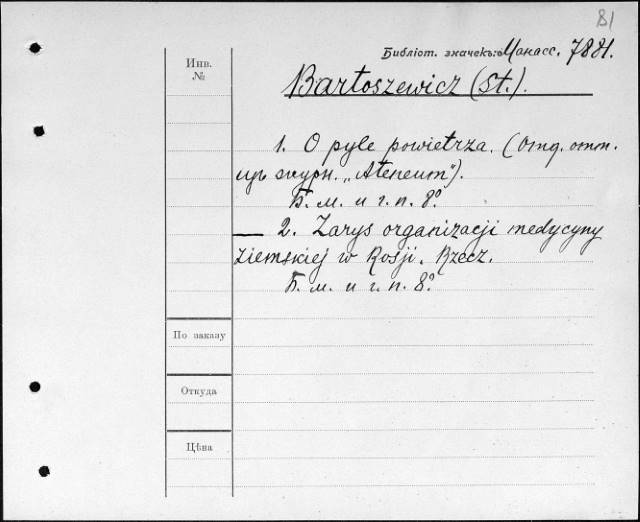 81
Библіот. значекъ: Манасс. 7881.
Инв.
№
Bartoszewicz (St.).
1. O pyle powietrza. (Отд. отт.
изъ журн. „Ateneum").
Б. м. и г. п. 8º
— 2. Zarys organizacji medycyny
ziemskiej w Rosji. Rzecz.
Б. м. и г. п. 8º
По заказу
Откуда
Цѣна